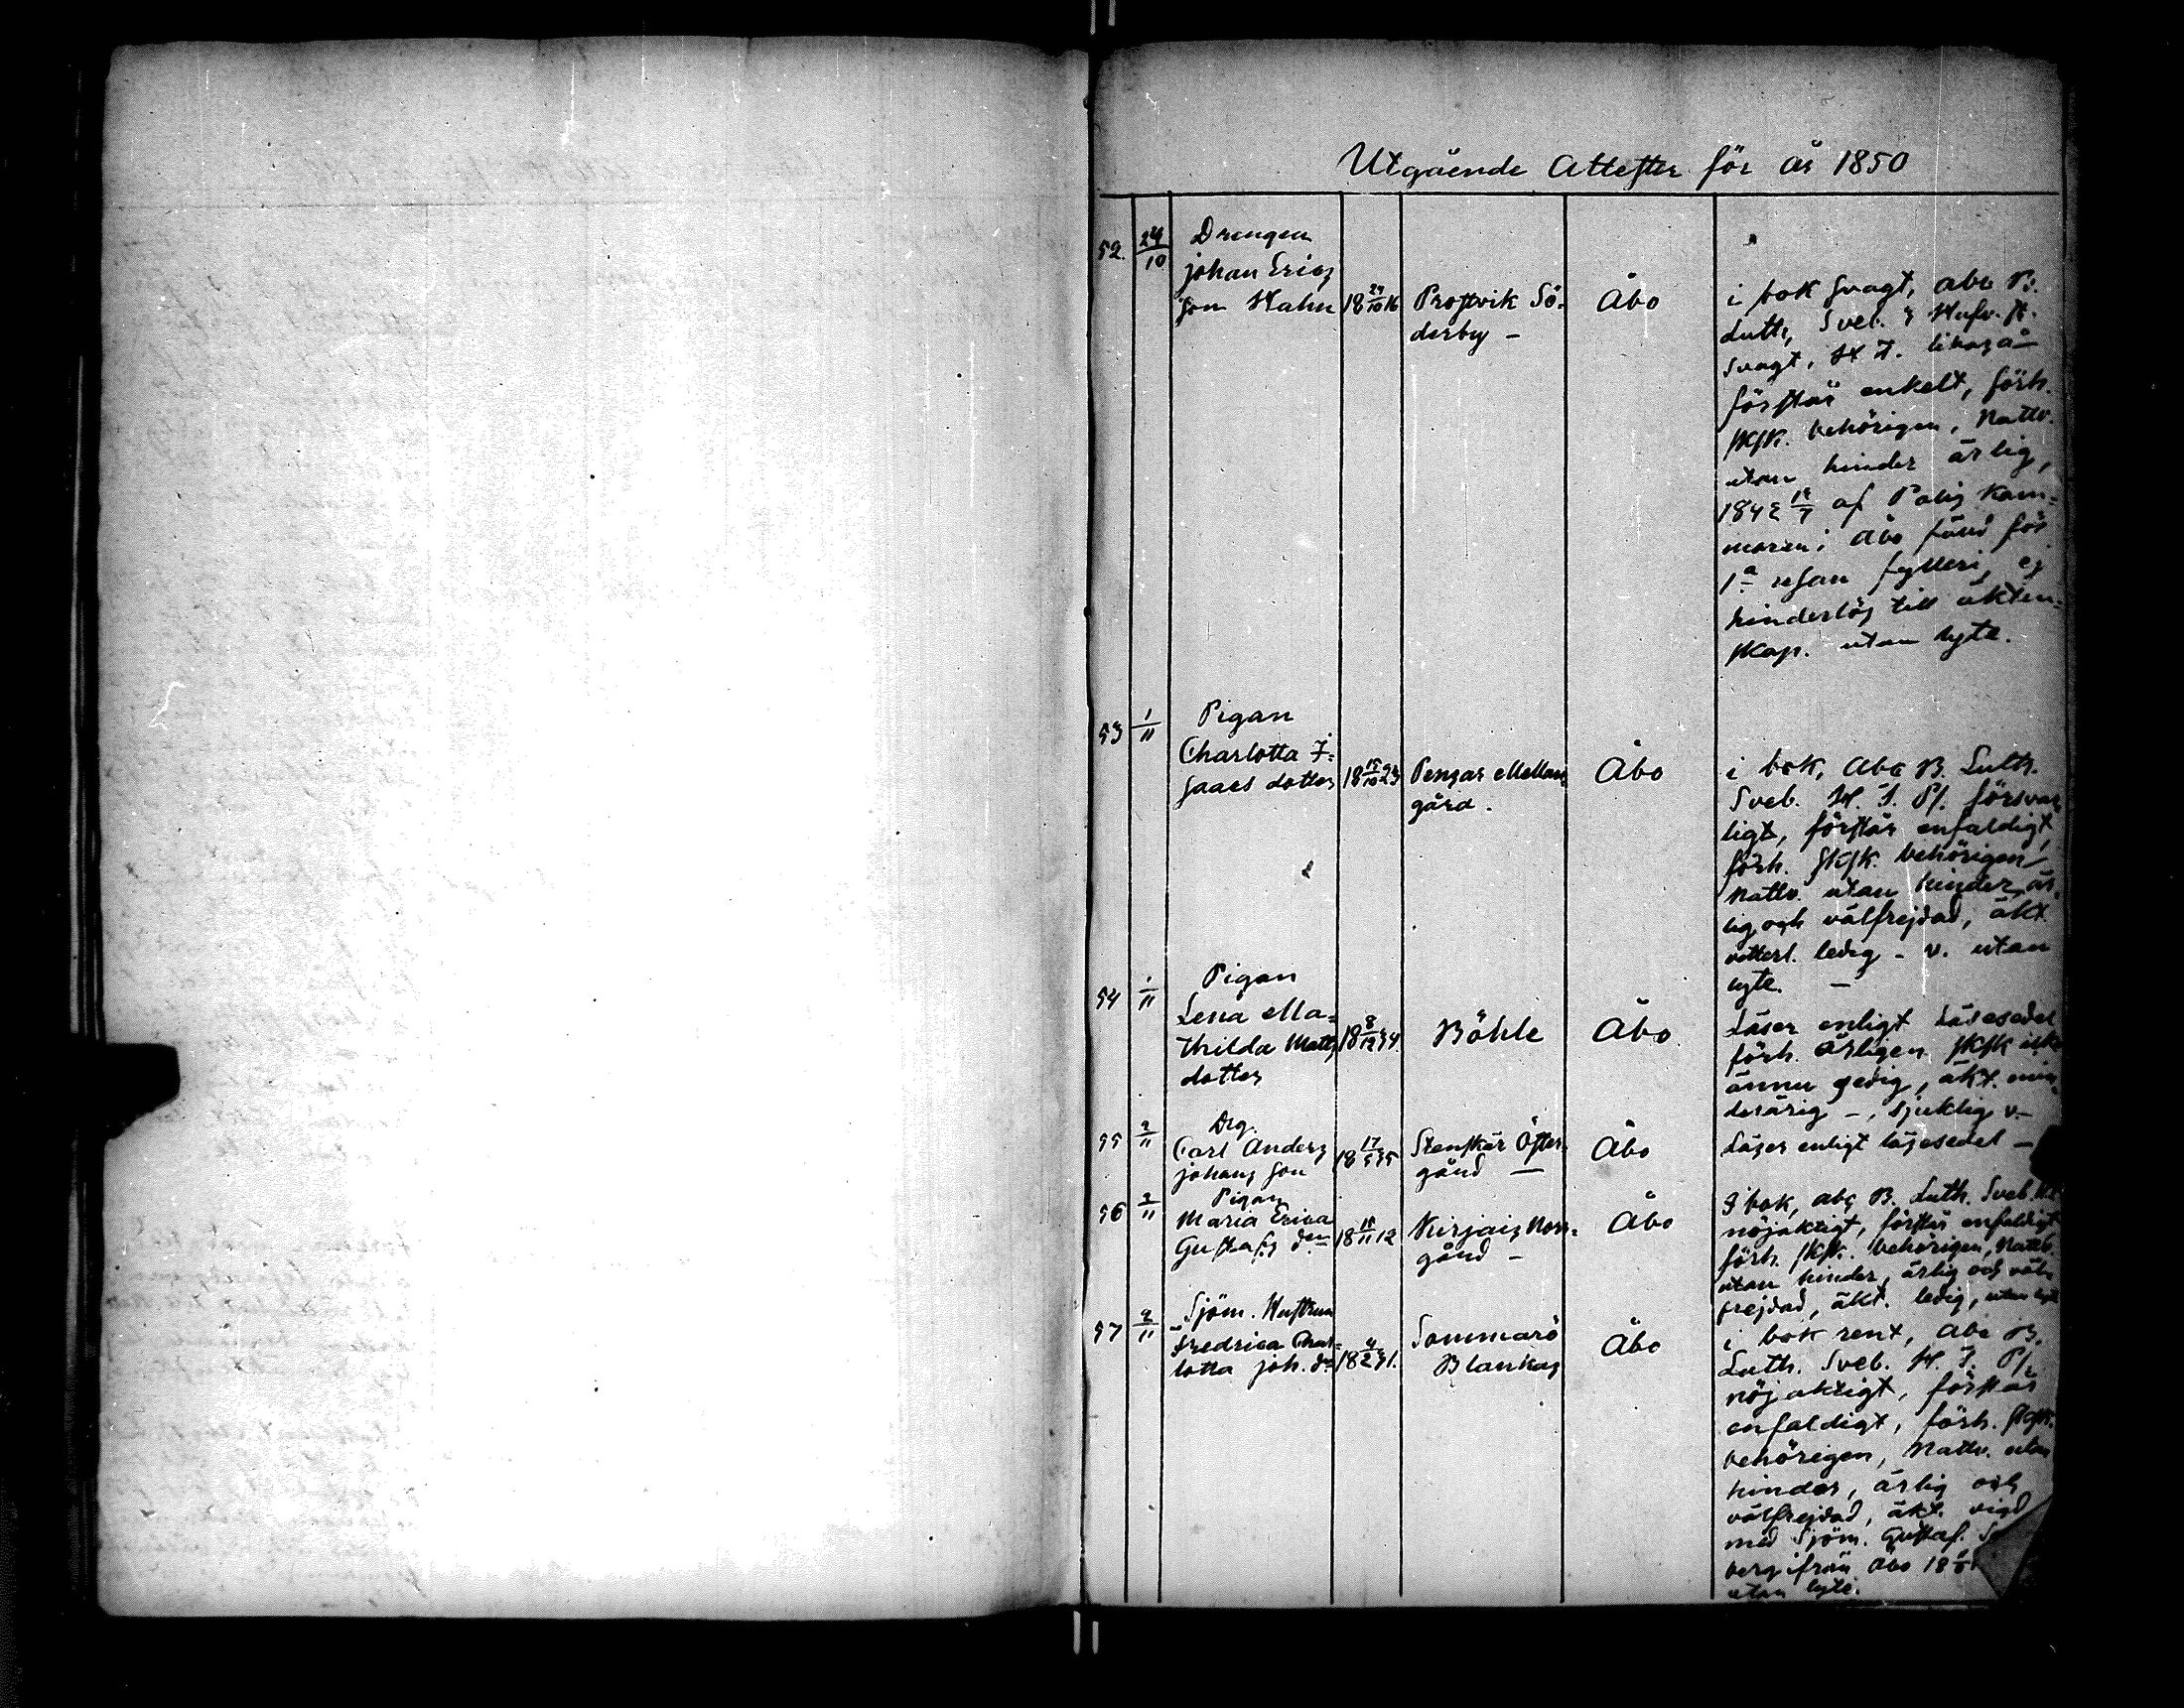 Utgående Attester för år 1850
52. 24/10 Drengen
Johan Erics
son Hahn 18 24/10 16 Prostvik Sö-
derby – Åbo
i bok svagt, abc B.
Luth, Sveb. & Hufv. st.
svagt, H T. likaså
förstår enkelt, förh.
skfk. behörigen, Nattv.
utan hinder ärlig,
af Polis Kam-
maren i Åbo fäld för
1a resan fylleri, ej
hinderlös till äkten-
skap. utan lyte.
53 1/11 Pigan
Charlotta I-
saacs dotter 18 15/10 23 Pensar Mellan-
gård. Åbo
i bok, Abc B. Luth.
Sveb. H. T. Ps. försvar-
ligt, förstår enfaldigt,
förh. skfk. behörigen
Nattv. utan hinder, är-
lig och välfrejdad, äkt.
vitterl. ledig – v. utan
lyte. –
54 1/11 Pigan
Lena Ma-
thilda Matts
dotter 18 8/12 34. Böhle Åbo
Läser enligt Läsesedel
förh. årligen skfk icke
ännu gedig, äkt. min-
derårig –, sjuklig v. –
55 2/11 Drg.
Carl Anders
Johans son 18 17/5 35 Stenskär Öster-
gård — Åbo
Läser enligt läsesedel –
56 2/11 Pigan
Maria Erica
Gustafs dr 18 12 Kirjais Norr-
gård – Åbo
I bok, abc B. Luth. Sveb.
nöjaktigt, förstår enfaldigt
förh. skfk. behörigen, Nattv.
utan hinder, ärlig och väl-
frejdad, äkt. ledig, utan lyte
57 2/11 Sjöm. Hustrun
Fredrica Char-
lotta Joh. dr 18 4/2 31. Sommarö
Blankas Åbo
i bok rent, Abc B.
Luth. Sveb. H. T. Ps
nöjaktigt, förstår
enfaldigt, förh. skfk.
behörigen, Nattv. utan
hinder, ärlig och
välfrejdad, äkt. vigd
med Sjöm. Gustaf.
berg ifrån Åbo 18
utan lyte.